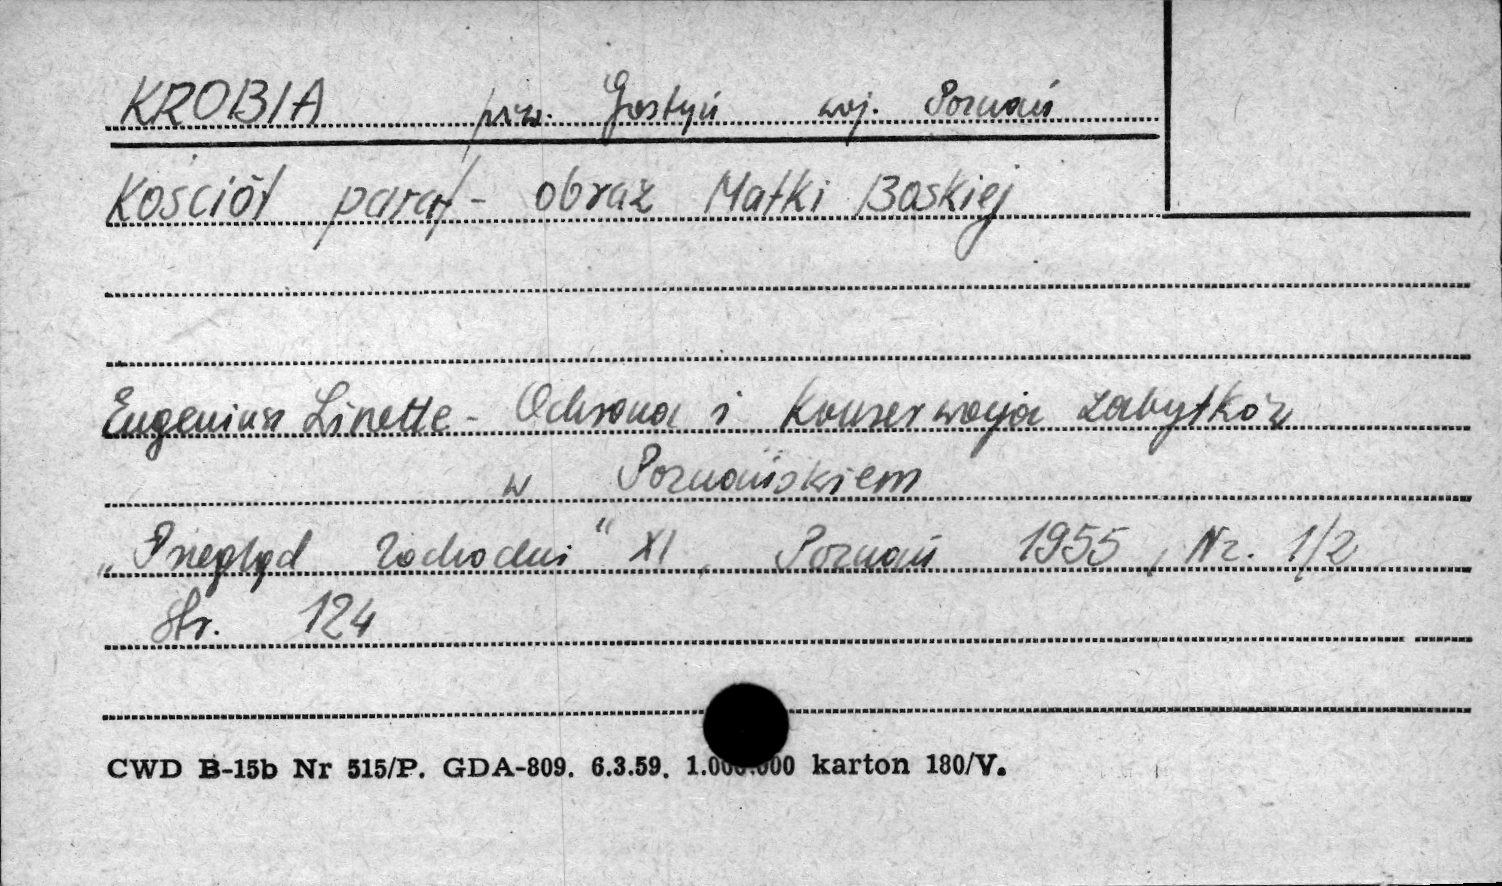 KROBIA pow. Gostyń woj. Poznań
Kościół paraf - obraz Matki Boskiej
Eugeniusz Linette - Ochrona i Konserwacja zabytków
w Poznańskiem
„Przegląd Zachodni" XI, Poznań 1955, Nr. 1/2
str. 124
CWD B-15b Nr 515/P. GDA-809. 6.3.59. 1.000.000 karton 180/V.